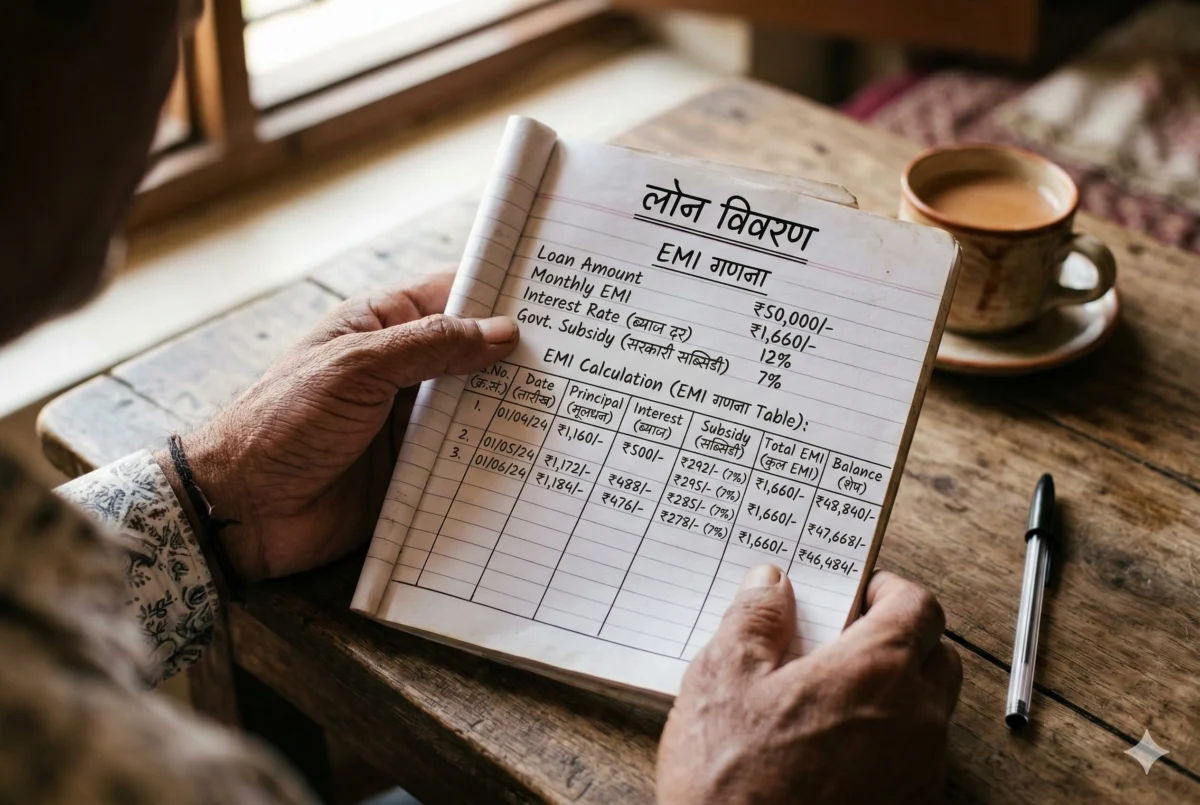 लोन विवरण
EMI गणना
Loan Amount ₹50,000/-
Monthly EMI ₹1,660/-
Interest Rate (ब्याज दर) 12%
Govt. Subsidy (सरकारी सब्सिडी) 7%
EMI Calculation (EMI गणना Table):
S.No. Date Principal Interest Subsidy Total EMI Balance
(क्र.सं) (तारीख) (मूलधन) (ब्याज) (सब्सिडी) (कुल EMI) (शेष)
1. 01/04/24 ₹1,160/- ₹500/- ₹292/- (7%) ₹1,660/- ₹48,840/-
₹295/- (7%)
2. 01/05/24 ₹1,172/- ₹488/- ₹285/- (7%) ₹1,660/- ₹47,668/-
3. 01/06/24 ₹1,184/- ₹476/- ₹278/- (7%) ₹1,660/- ₹46,484/-